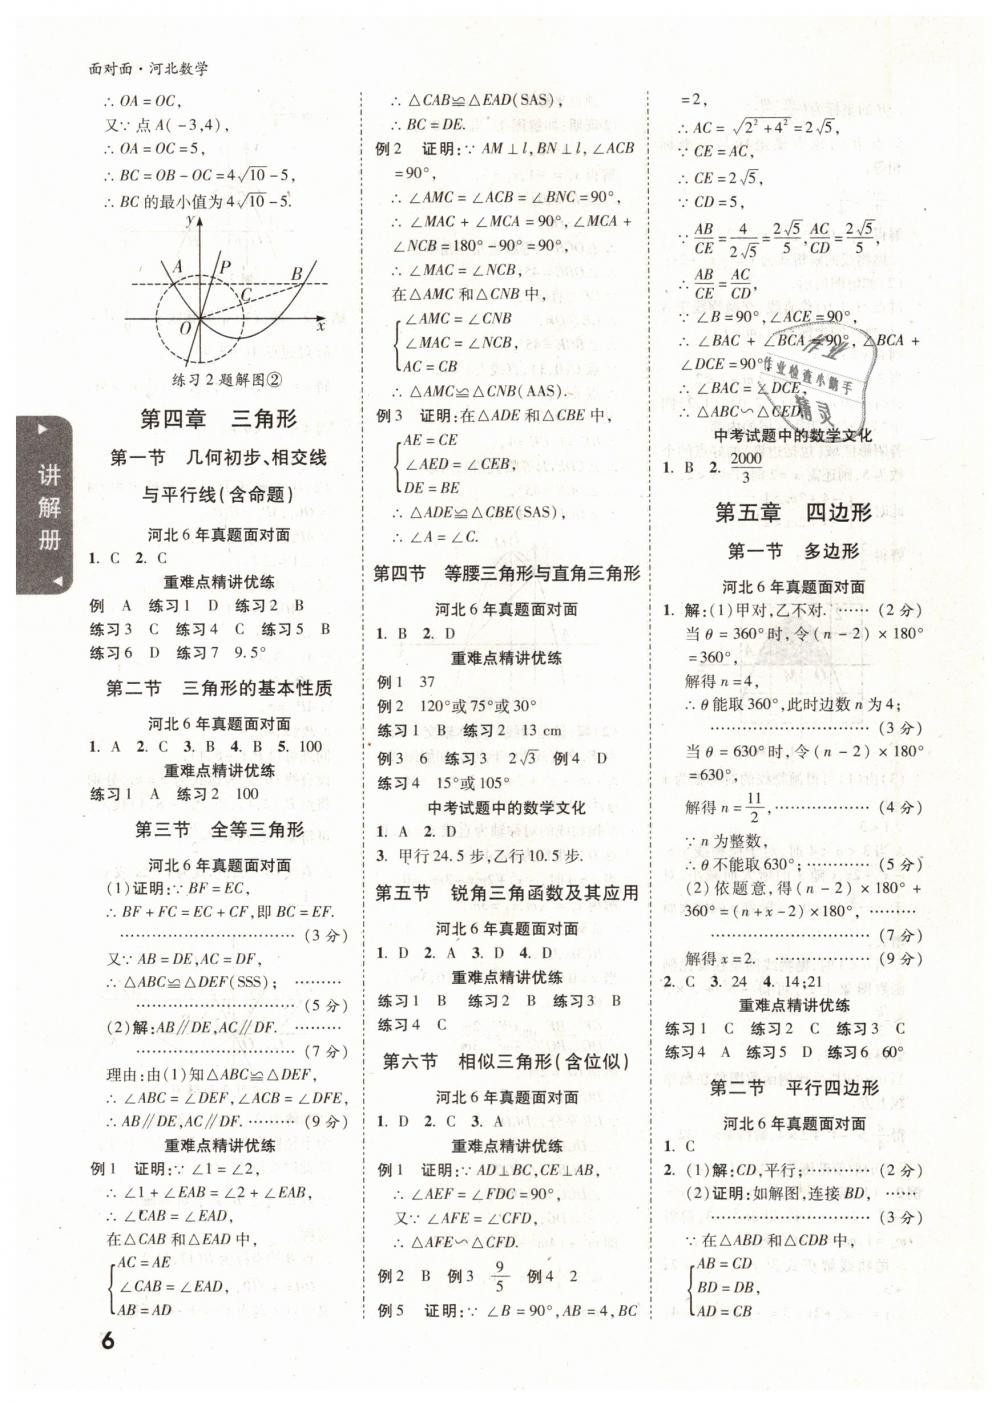 面对面·河北数学
∴ OA = OC,
又∵ 点A( -3,4),
∴ OA = OC = 5,
∴ BC = OB - OC = 4√10 - 5,
∴ BC 的最小值为 4√10 - 5.
y
A P B
C
O x
练习2题解图②
第四章 三角形
第一节 几何初步、相交线
与平行线(含命题)
河北6年真题面对面
1. C 2. C
重难点精讲优练
例 A 练习1 D 练习2 B
练习3 C 练习4 C 练习5 B
练习6 D 练习7 9.5°
第二节 三角形的基本性质
河北6年真题面对面
1. A 2. C 3. B 4. B 5. 100
重难点精讲优练
练习1 A 练习2 100
第三节 全等三角形
河北6年真题面对面
(1)证明:∵ BF = EC,
∴ BF + FC = EC + CF,即 BC = EF.
…………………………… (3分)
又∵ AB = DE,AC = DF,
∴ △ABC≌△DEF(SSS); ………
………………………… (5分)
(2)解:AB∥DE,AC∥DF. ………
………………………… (7分)
理由:由(1)知△ABC≌△DEF,
∴ ∠ABC = ∠DEF,∠ACB = ∠DFE,
∴ AB∥DE,AC∥DF. ……… (9分)
重难点精讲优练
例1 证明:∵ ∠1 = ∠2,
∴ ∠1 + ∠EAB = ∠2 + ∠EAB,
∴ ∠CAB = ∠EAD,
在△CAB 和△EAD 中,
{AC = AE
∠CAB = ∠EAD,
AB = AD
∴ △CAB≌△EAD(SAS),
∴ BC = DE.
例2 证明:∵ AM⊥l,BN⊥l,∠ACB
= 90°,
∴ ∠AMC = ∠ACB = ∠BNC = 90°,
∴ ∠MAC + ∠MCA = 90°,∠MCA +
∠NCB = 180° - 90° = 90°,
∴ ∠MAC = ∠NCB,
在△AMC 和△CNB 中,
{∠AMC = ∠CNB
∠MAC = ∠NCB,
AC = CB
∴ △AMC≌△CNB(AAS).
例3 证明:在△ADE 和△CBE 中,
{AE = CE
∠AED = ∠CEB,
DE = BE
∴ △ADE≌△CBE(SAS),
∴ ∠A = ∠C.
第四节 等腰三角形与直角三角形
河北6年真题面对面
1. B 2. D
重难点精讲优练
例1 37
例2 120°或75°或30°
练习1 B 练习2 13 cm
例3 6 练习3 2√3 例4 D
练习4 15°或105°
中考试题中的数学文化
1. A 2. D
3. 甲行24.5步,乙行10.5步.
第五节 锐角三角函数及其应用
河北6年真题面对面
1. D 2. A 3. D 4. D
重难点精讲优练
练习1 B 练习2 B 练习3 B
练习4 C
第六节 相似三角形(含位似)
河北6年真题面对面
1. D 2. C 3. A
重难点精讲优练
例1 证明:∵ AD⊥BC,CE⊥AB,
∴ ∠AEF = ∠FDC = 90°,
又∵ ∠AFE = ∠CFD,
∴ △AFE∽△CFD.
例2 B 例3 9/5 例4 2
例5 证明:∵ ∠B = 90°,AB = 4,BC
= 2,
∴ AC = √(2² + 4²) = 2√5,
∵ CE = AC,
∴ CE = 2√5,
∵ CD = 5,
∵ AB/CE = 4/(2√5) = 2√5/5, AC/CD = 2√5/5,
∴ AB/CE = AC/CD,
∵ ∠B = 90°,∠ACE = 90°,
∴ ∠BAC + ∠BCA = 90°, ∠BCA +
∠DCE = 90°,
∴ ∠BAC = ∠DCE,
∴ △ABC∽△CED.
作业
作业检查小帮手
精灵
中考试题中的数学文化
1. B 2. 2000/3
第五章 四边形
第一节 多边形
河北6年真题面对面
1. 解:(1)甲对,乙不对. …… (2分)
当 θ = 360°时,令(n - 2) × 180°
= 360°,
解得 n = 4,
∴ θ 能取360°,此时边数 n 为4;
…………………… (3分)
当 θ = 630°时,令(n - 2) × 180°
= 630°,
解得 n = 11/2,……………… (4分)
∵ n 为整数,
∴ θ 不能取630°;………… (5分)
(2)依题意,得(n - 2) × 180° +
360° = (n + x - 2) × 180°, ………
…………………… (7分)
解得 x = 2. ……………… (9分)
2. C 3. 24 4. 14;21
重难点精讲优练
练习1 C 练习2 C 练习3 C
练习4 A 练习5 D 练习6 60°
第二节 平行四边形
河北6年真题面对面
1. C
2. (1)解:CD,平行;………… (2分)
(2)证明:如解图,连接 BD, ……
…………………… (3分)
∵ 在△ABD 和△CDB 中,
{AB = CD
BD = DB,
AD = CB
讲解册
6